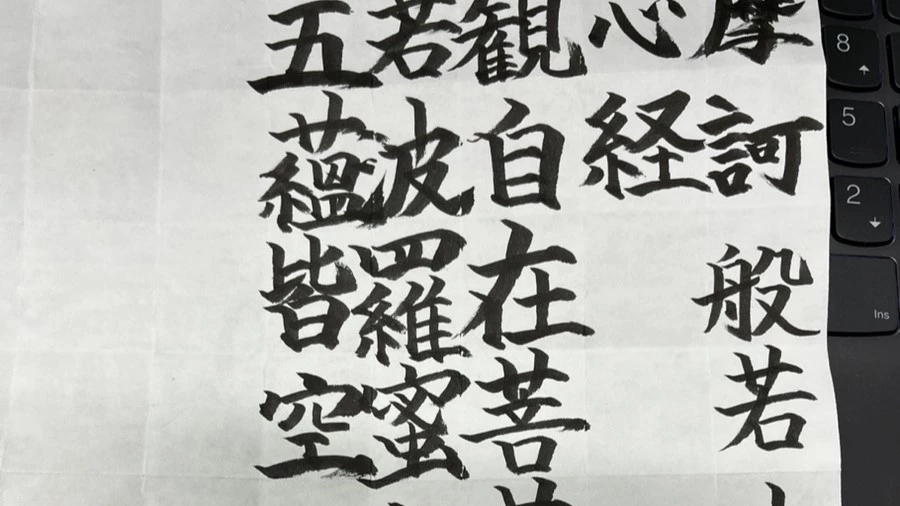 摩訶般若
心経
観自在菩
若波羅蜜
五蘊皆空
8
5
2
Ins